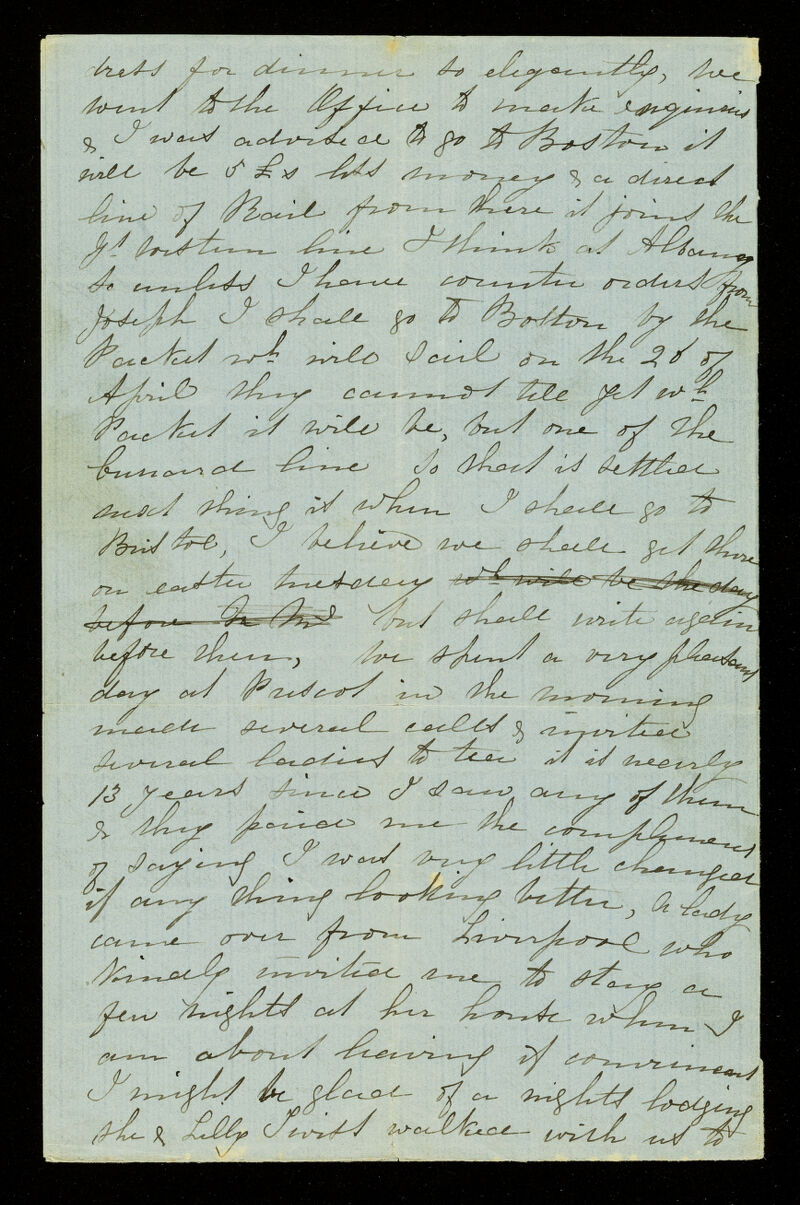 dress for dinner so elegantly, we
went to the Office to make enquiries
& I was advised to go to Boston it
will be 5 £s less money & a direct
line of Rail from there it joins the
Gt western line I think at Albany
so unless I have counter orders from
Joseph I shall go to Boston by the
Packet wh will sail on the 2d of
April they cannot tell yet wh
Packet it will be, but one of the
Cunard line So that is settled
next thing is when I shall go to
Bristol, I believe we shall get there
on easter tuesday wh will be the day
before but shall write again
before then, We spent a very pleasant
day at Prescot in the morning
made several calls & invited
several ladies to tea it is nearly
13 years since I saw any of them
& they paied me the compliment
of saying I was very little changed
if any thing looking better, A lady
came over from Liverpool who
kindly invited me to stay a
few nights at her house when I
am about leaving if convenient
I might be glad of a nights lodging
she & Lilly Twiss walked with us to